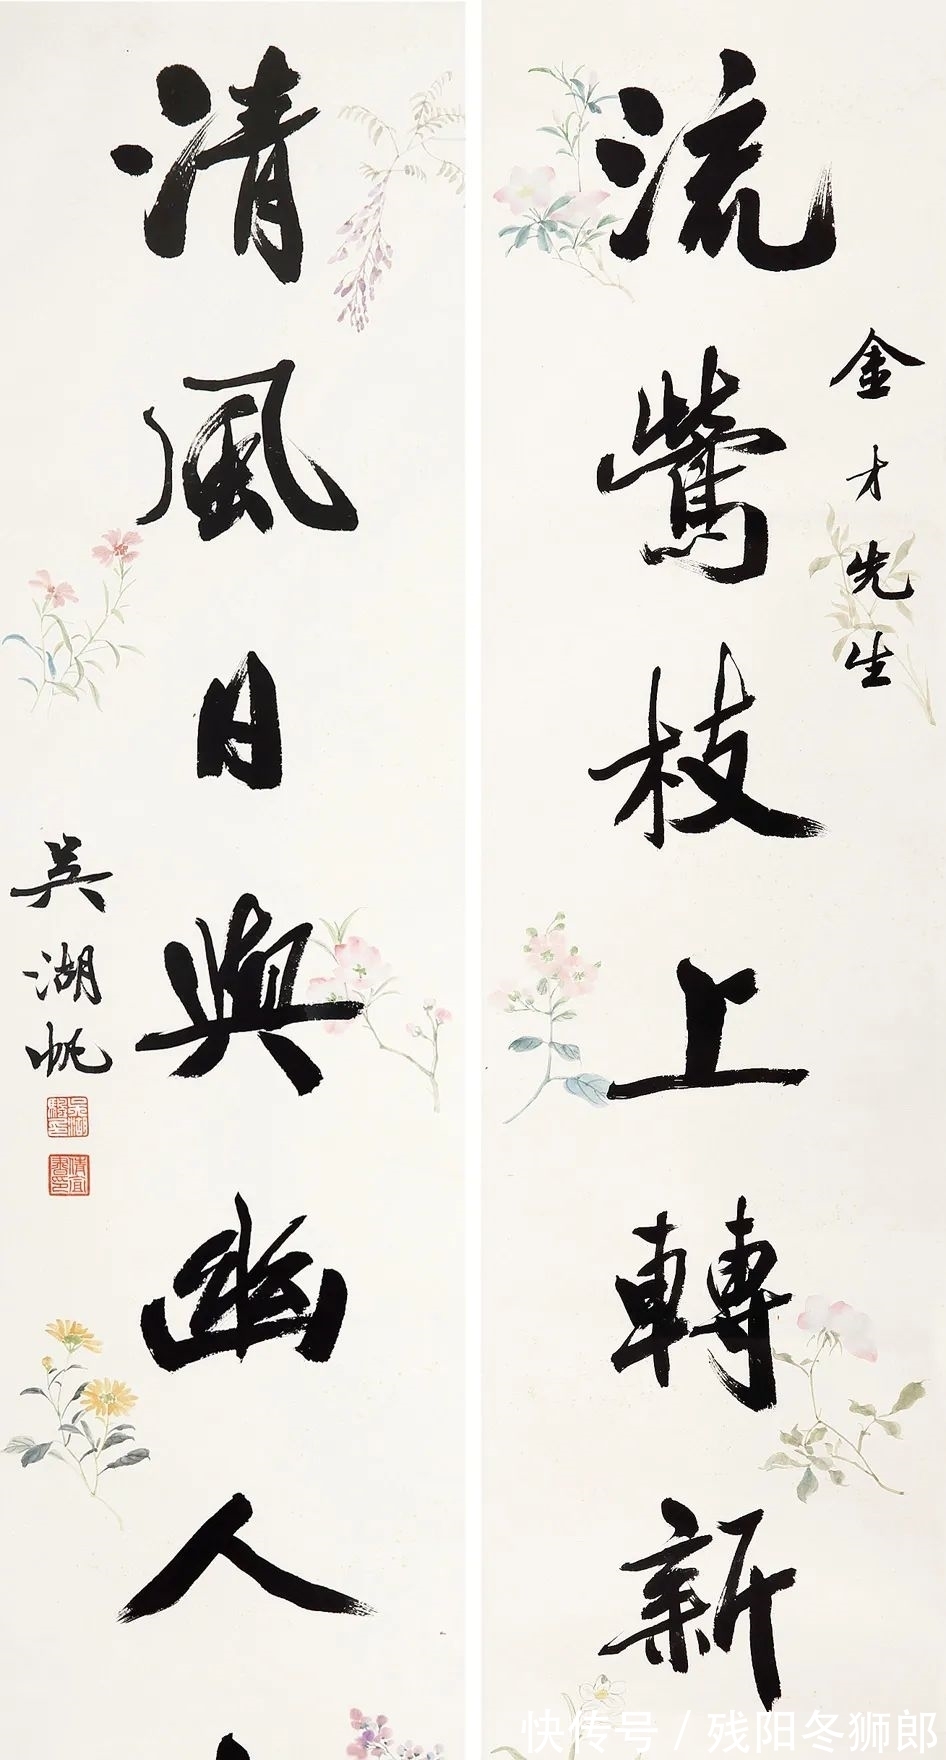 金才先生
流鶯枝上轉新
清風日與幽人
吳湖帆
快传号/残阳冬狮郎